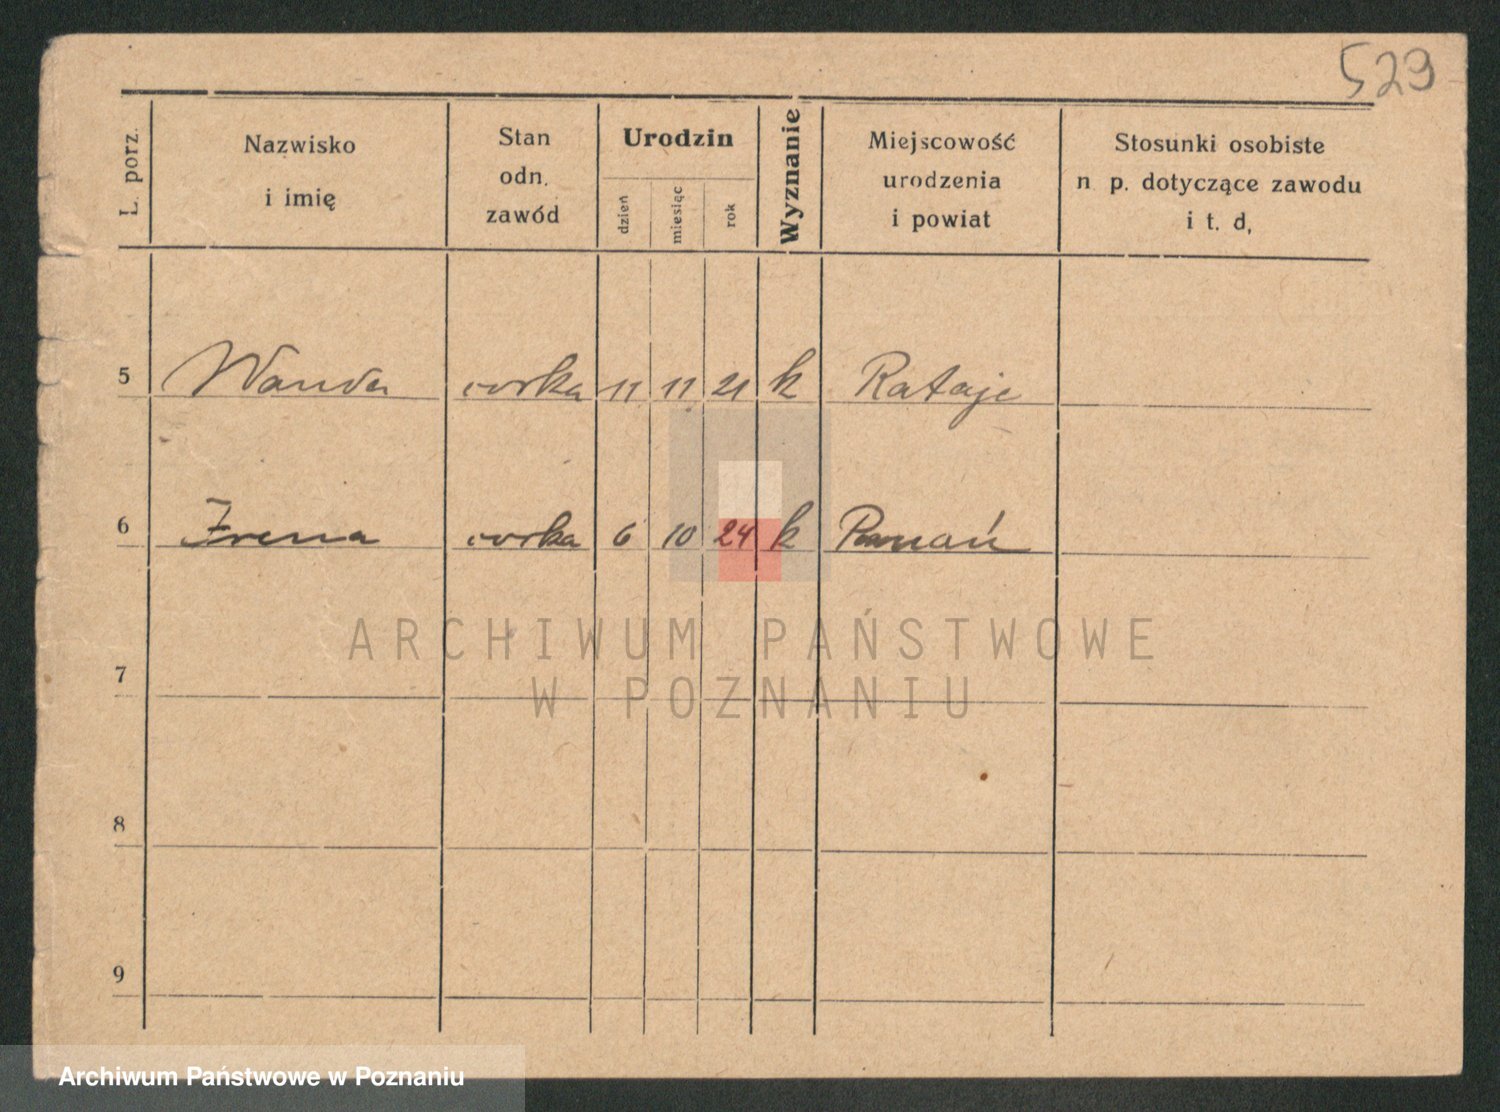 529
L. porz. Nazwisko i imię Stan odn. zawód Urodzin dzień miesiąc rok Wyznanie Miejscowość urodzenia i powiat Stosunki osobiste n p. dotyczące zawodu i t. d,
5 Wanda córka 11 11 21 k Rataje
6 Irena córka 6 10 24 k Poznań
ARCHIWUM PAŃSTWOWE
W POZNANIU
7
8
9
Archiwum Państwowe w Poznaniu